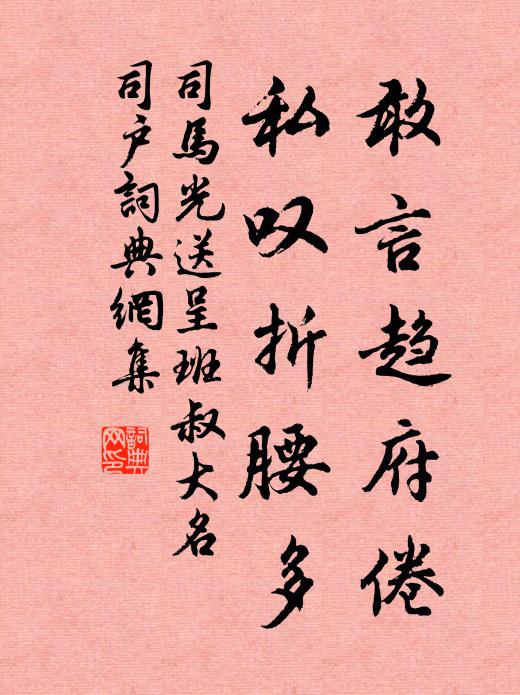 敢言趋府倦
私叹折腰多
司馬光送呈班叔大名
司户詞典網集
詞典网印